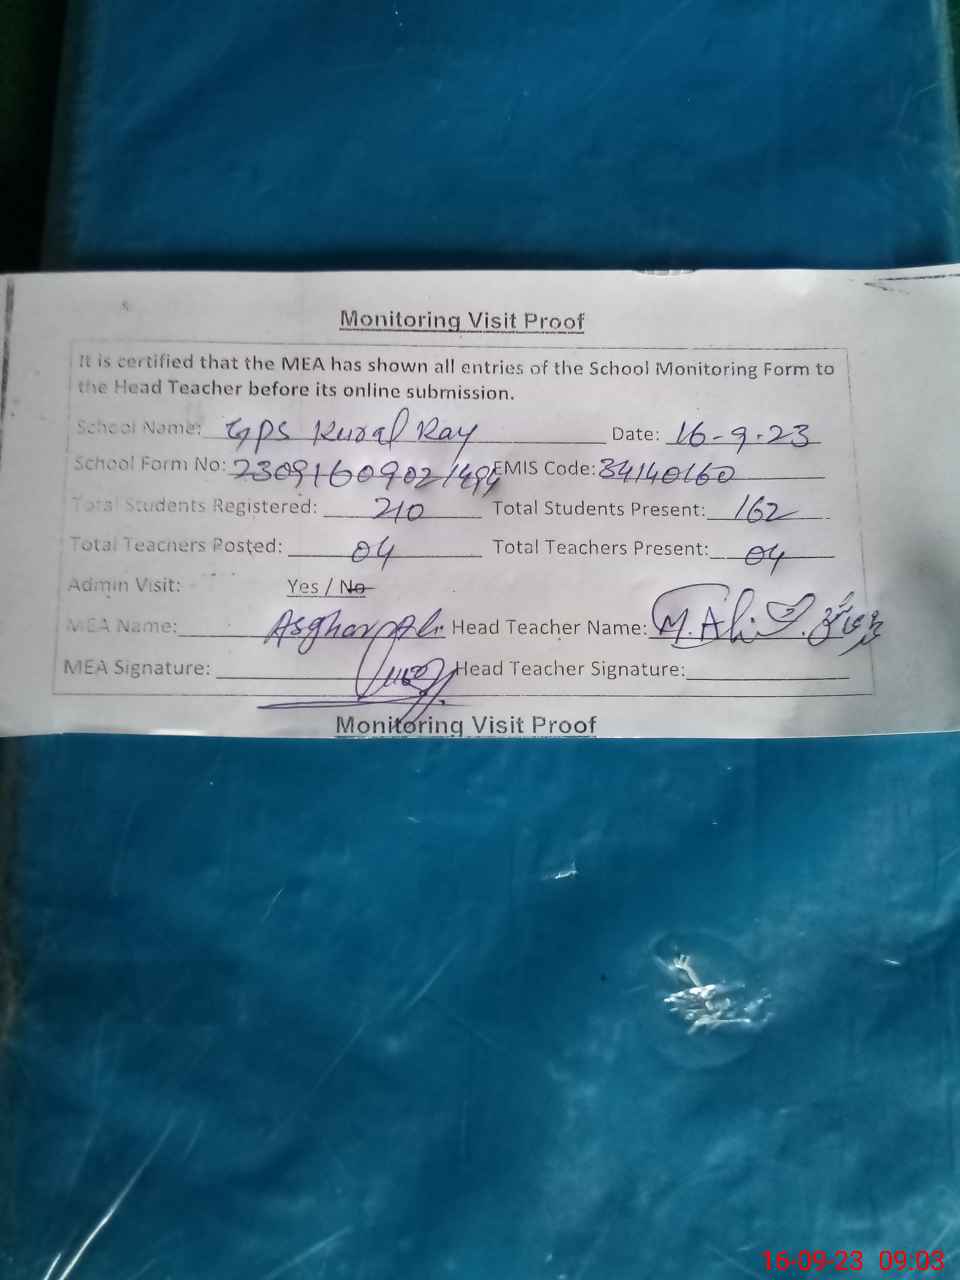 Monitoring Visit Proof
It is certified that the MEA has shown all entries of the School Monitoring Form to
the Head Teacher before its online submission.
School Name: GPS Rural Ray Date: 16-9-23
School Form No: 2309160902 EMIS Code: 34140160
Total Students Registered: 210 Total Students Present: 162
Total Teachers Posted: 04 Total Teachers Present: 04
Admin Visit: Yes / No
MEA Name: Asghar Ali Head Teacher Name: M. Ali
MEA Signature: Head Teacher Signature:
Monitoring Visit Proof
16-09-23 09:03